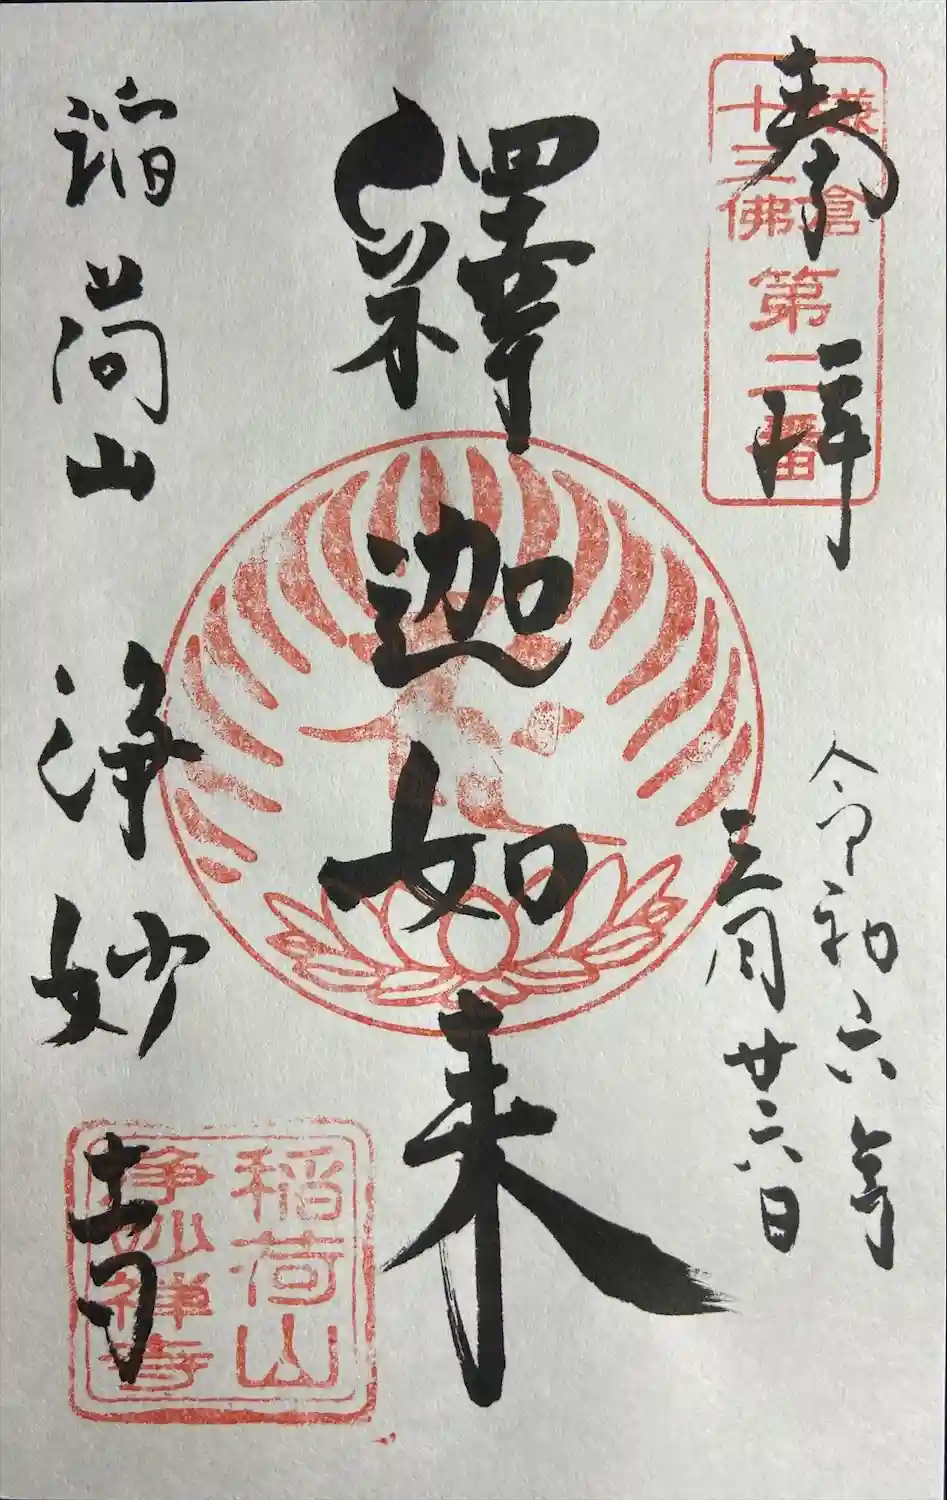 奉拝
鎌倉
十三佛
第二番
令和六年
三月廿六日
釋迦如来
稲荷山 浄妙寺
稲荷山
浄妙禅寺